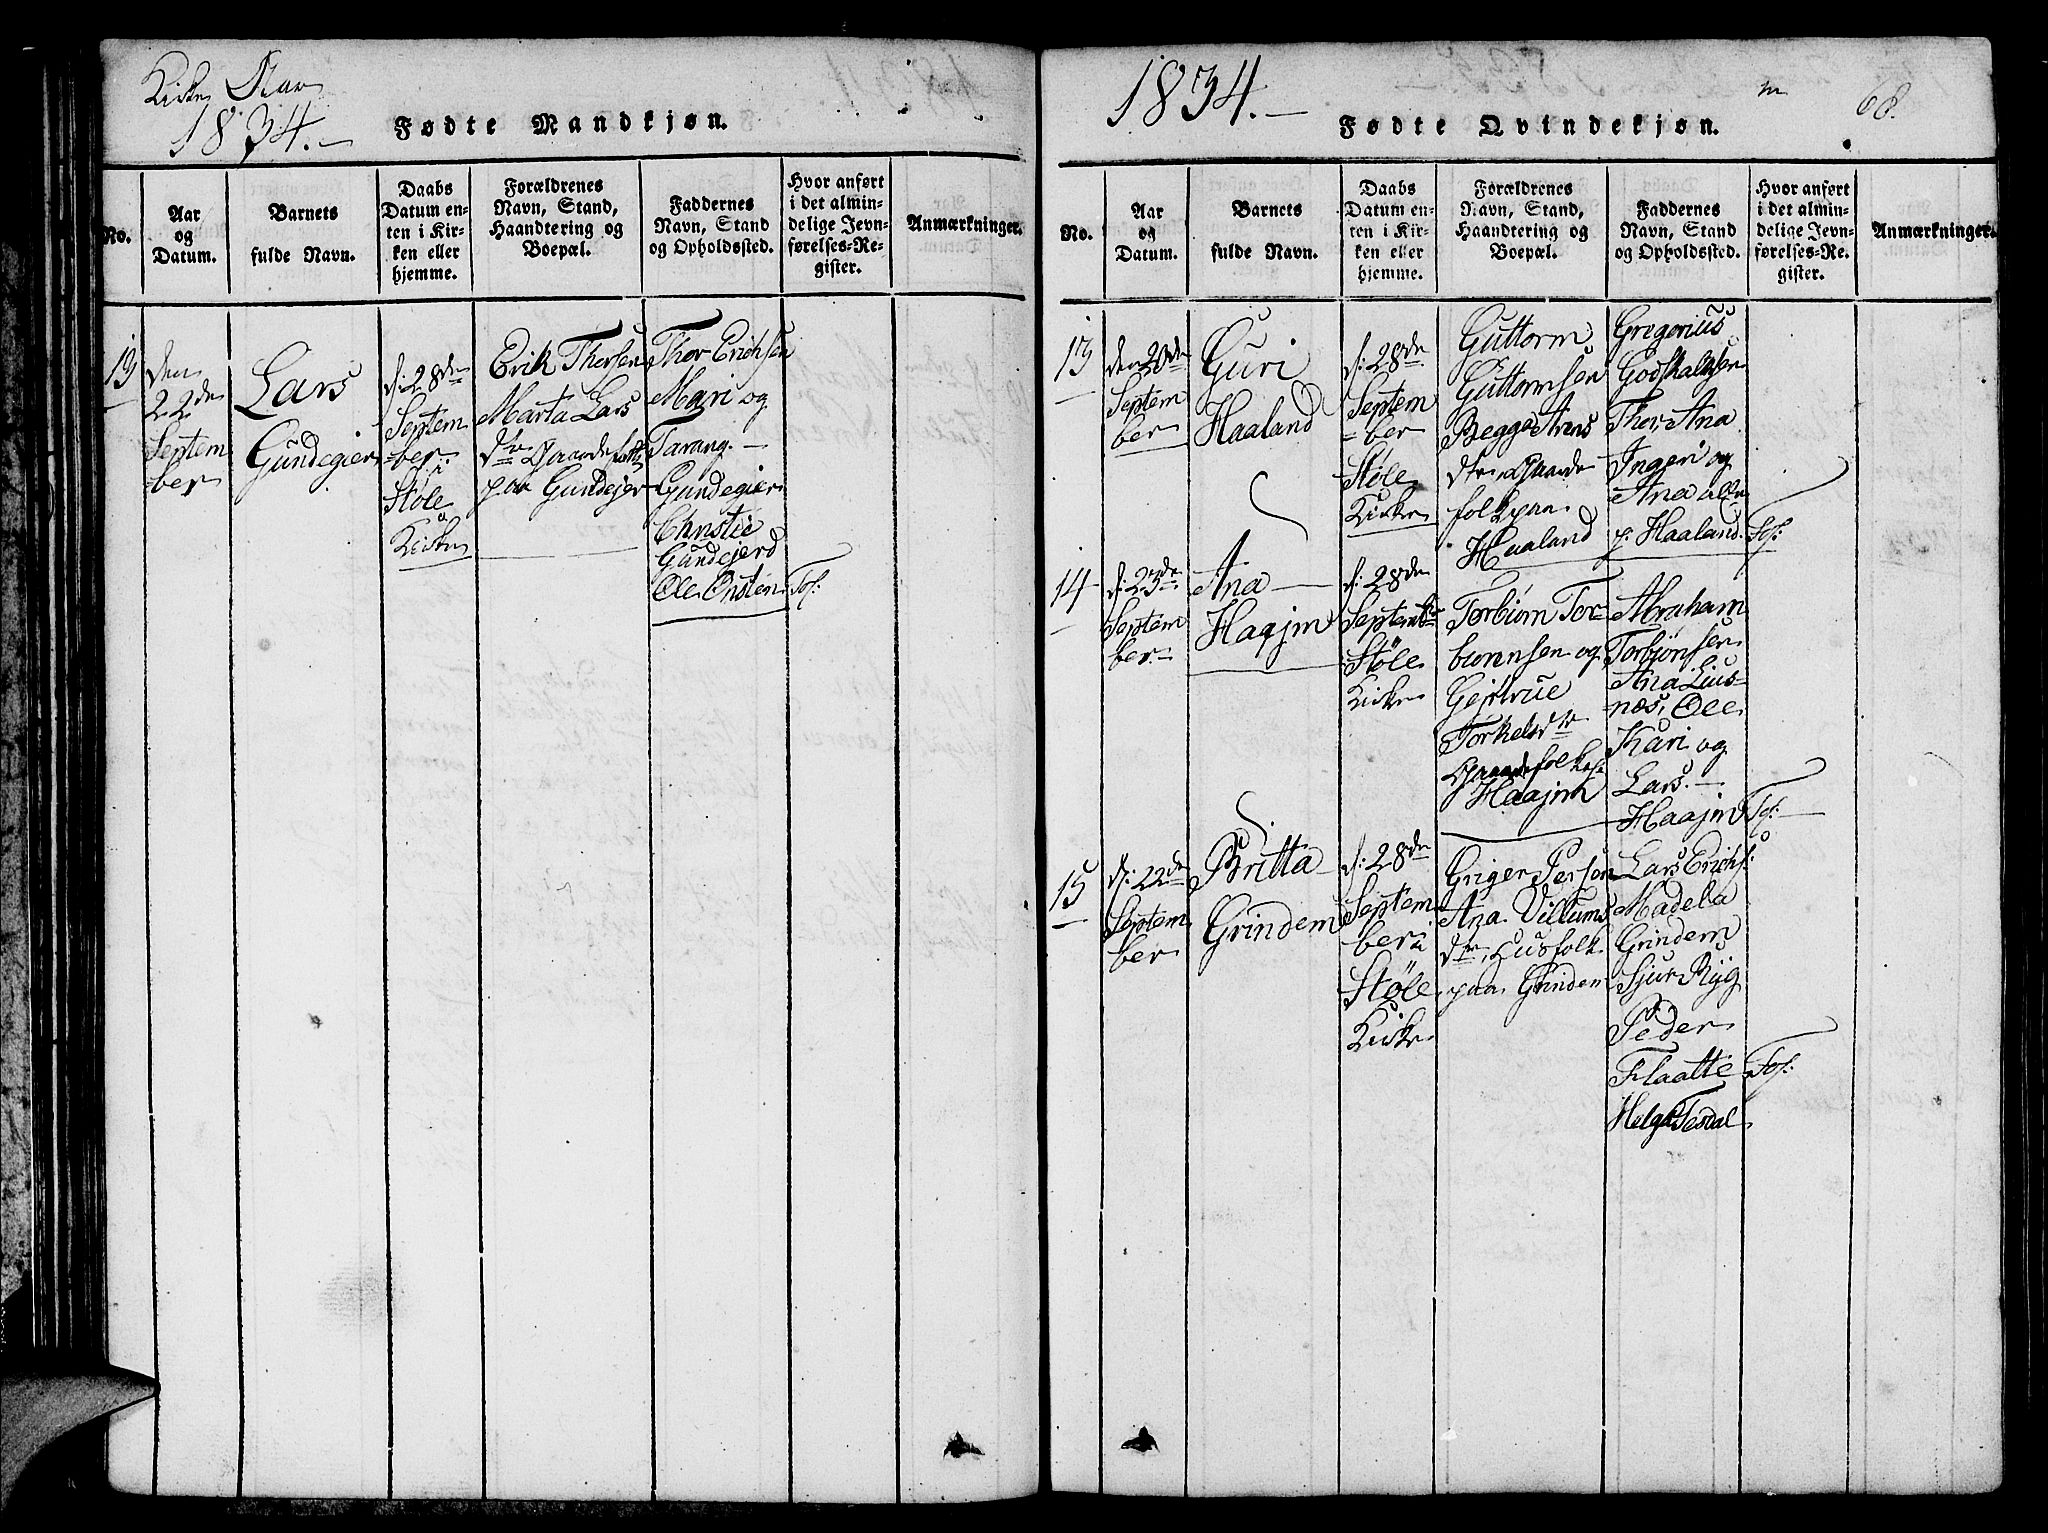 Kirke Aar
1834.
Fødte Mandkjøn.
No.
Aar
og
Datum.
Barnets
fulde Navn.
Daabs
Datum en-
ten i Kir-
ken eller
hjemme.
Forældrenes
Navn, Stand,
Haandtering og
Boepæl.
Faddernes
Navn, Stand
og Opholdssted.
Hvor anført
i det almin-
delige Jevn-
førelses-Re-
gister.
Anmærkninger.
13
den
22de
Septem
-ber
Lars
Gundegier
d: 28de
Septem
-ber i
Støle
Kirke
Erik Thorsen
Marta Lars
dtr Gaardefolk
paa Gundejer
Thor Erichsen
Mari og
Tarang.
Gundegier
Christie
Gundejerd
Ole Onsten
Tof:
1834.
68.
Fødte Qvindekjøn.
No.
Aar
og
Datum.
Barnets
fulde Navn.
Daabs
Datum en-
ten i Kir-
ken eller
hjemme.
Forældrenes
Navn, Stand,
Haandtering og
Boepæl.
Faddernes
Navn, Stand
og Opholdssted.
Hvor anført
i det almin-
delige Jevn-
førelses-Re-
gister.
Anmærkninger.
13
den 20de
Septem
ber
Guri
Haaland
d: 28de
Septem
-ber
Støle
Kirke
Guttorm
Guttormsen
Begga Arns
dtr Gaarde
folk paa
Haaland
Gregorius
Godskalksen
Thor Ana
Ingeri og
Ana alle
p: Haaland.
Tof:
14
d: 23de
Septem
ber
Ana
Haajm
d: 28de
Septembr
Støle
Kirke
Torbiørn Tor-
biørnsen og
Gejrtrue
Torkelsdtr
Gaardefolk p:
Haajm
Abraham
Torbjørnsen
Ana Lius-
næs, Ole
Kari og
Lars.
Haajm
Tof:
15
d: 22de
Septem
ber
Britta
Grindem
d: 28de
Septem
ber i
Støle
Kirke
Griger Persen
Ana Villums
dtr, Husfolk
paa Grindem
Lars Erichs:
Madela
Grindem
Sjur Ryg
Peder
Flaatte
Helga Tesdal
Tof: